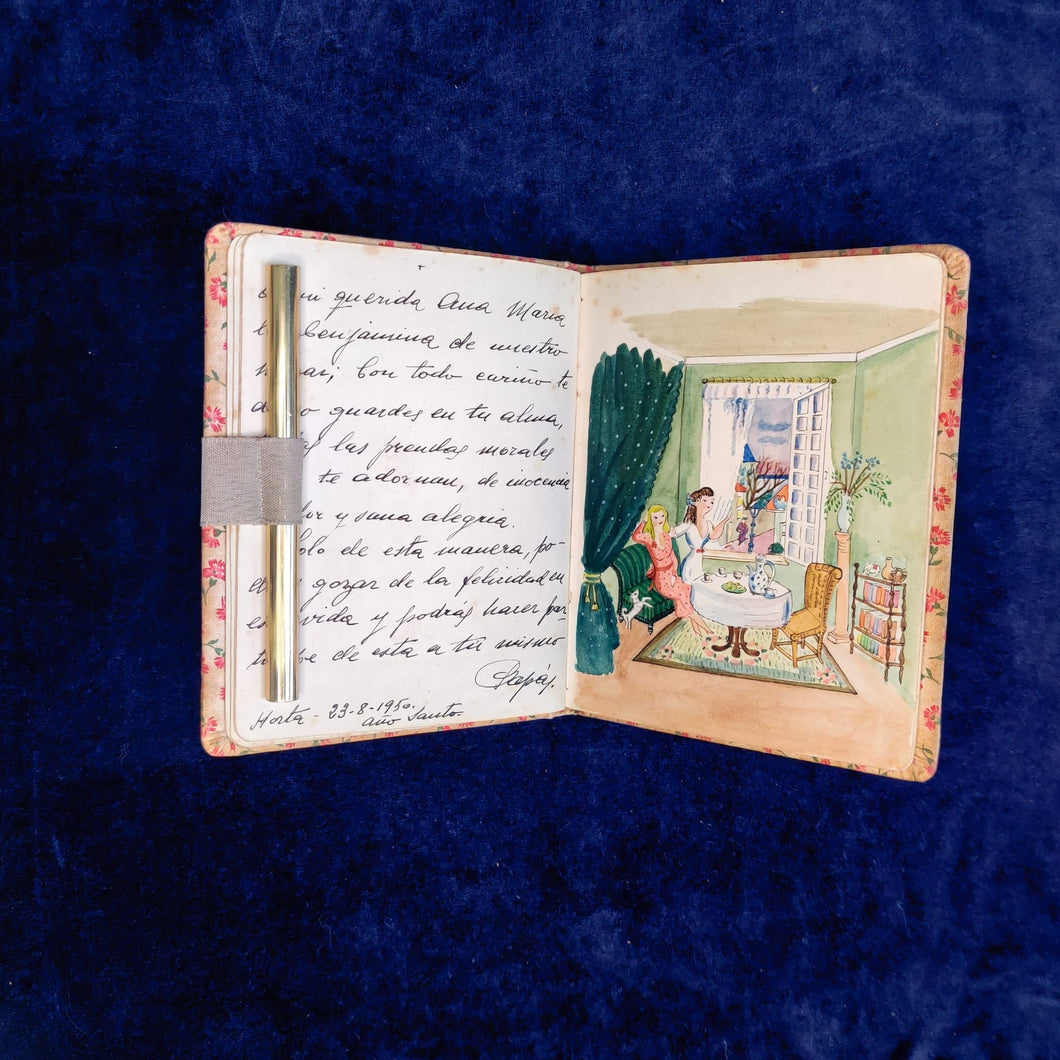 mi querida Ana Maria
benjamina de nuestro
Con todo cariño te
guardes en tu alma,
las prendas morales
te adornan, de inocencia
y sana alegria.
de esta manera, po-
gozar de la felicidad en
vida y podrás hacer par
de esta a tú mismo
Papá.
Horta - 23-8-1950.
año Santo.-